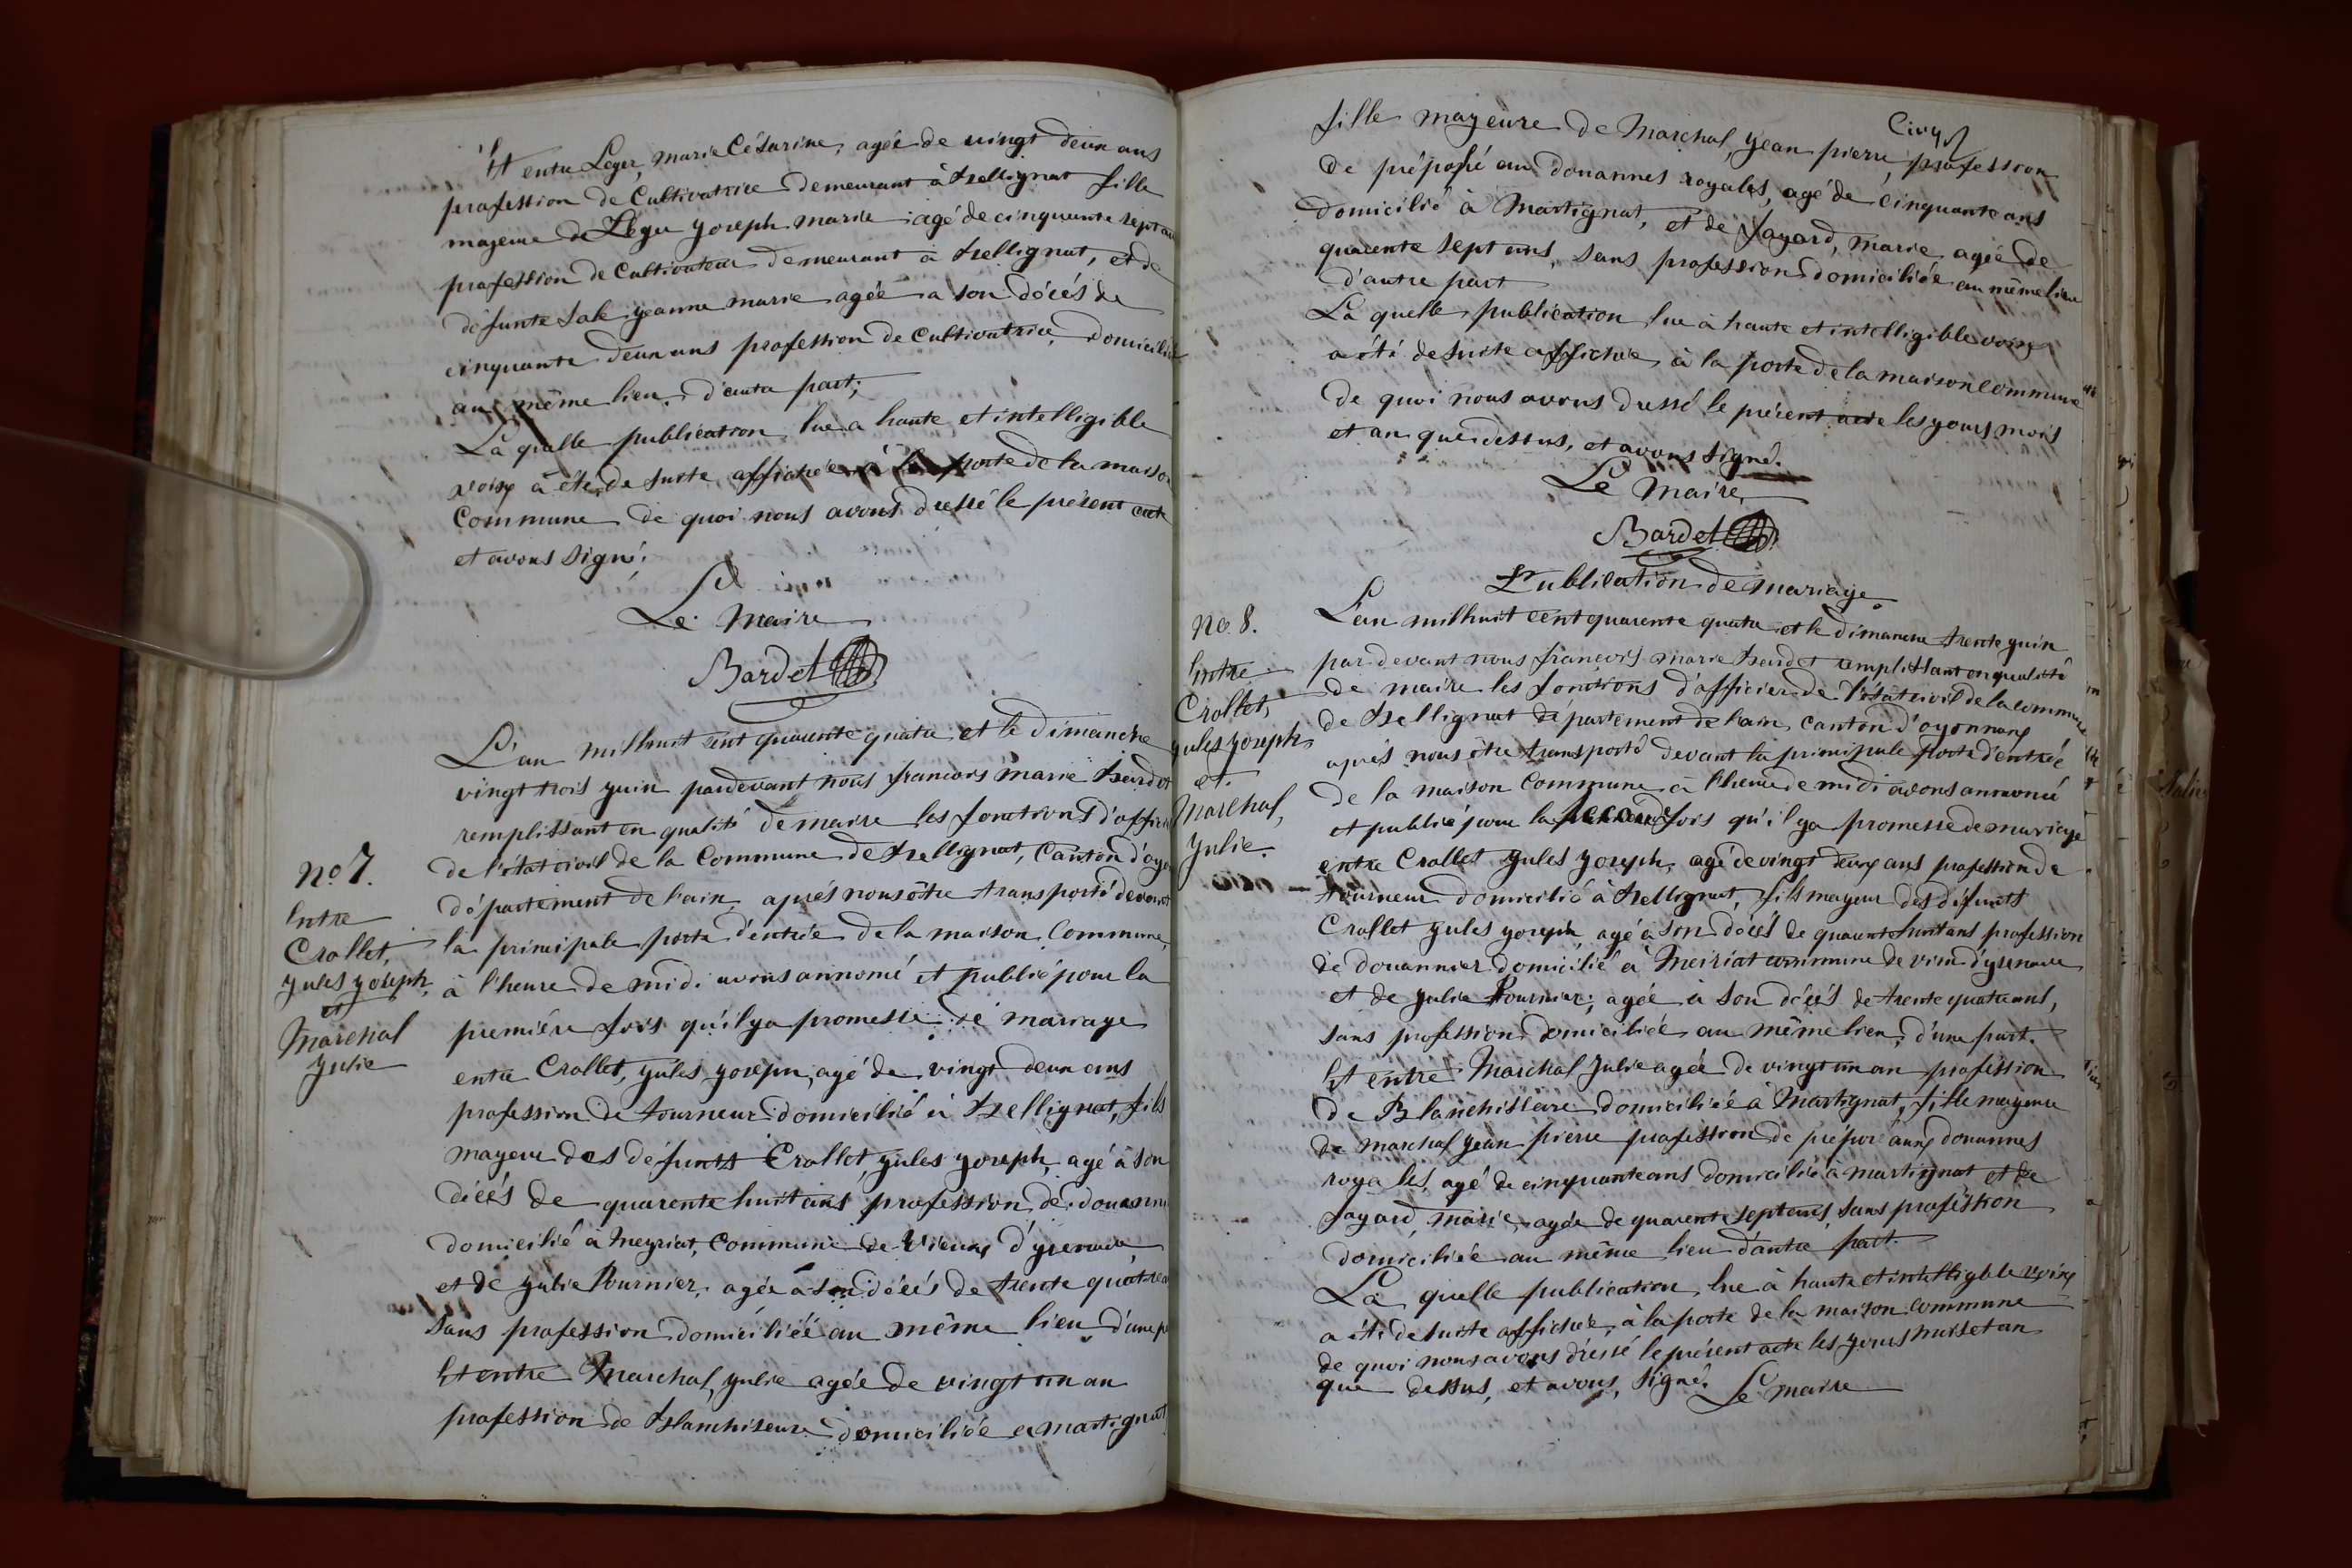 Et entre Leger, marie Césarine, agée de vingt deux ans
profession de Cultivatrice demeurant à Bellignat fille
majeure de Léger Joseph marie agé de cinquante sept an
profession de Cultivateur demeurant à Bellignat, et de
défunte Jeanne marie agée a son décés de
cinquante deux ans profession de Cultivatrice, domicilié
au même lieu d'autre part;
La qualle publication lue a haute et intelligible
voix à été de suite affichée à la porte de la maison
Commune de quoi nous avons dressé le présent acte
et avons signé.
Le Maire
Bardet
No. 7.
Entre
Crollet,
Jules Joseph.
et
Marchal
Julie
L'an mil huit cent quarente quatre et le Dimanche
vingt trois juin pardevant nous francois marie Bardet
remplissant en qualité de maire les fonctions d'officier
de l'état civil de la Commune de Bellignat, Canton d'oyo
département de l'ain, aprés nous être transporté devant
la principale porte d'entrée de la maison Commune,
à l'heure de midi avons annoncé et publié pour la
première fois qu'il ya promesse de mariage
entre Crollet, Jules Joseph, agé de vingt deux ans
profession de tourneur domicilié à Bellignat, fils
majeur des défunts Crollet Jules Joseph, agé à son
décés de quarente huit ans, profession de douannie
domicilié à Meyriat, Commune de Vieux d'ysenave,
et de Julie Fournier, agée à son décés de trente quatre a
sans profession domiciliée au même lieu d'une p
Et entre Marchal, Julie agée de vingt un an
profession de Blanchiseuse domiciliée a Martignat
Cinq
fille majeure de Marchal, Jean pierre, profession
de préposé au douannes royales, agé de cinquante ans
domicilié à Martignat, et de Fayard, Marie agée de
quarente sept ans, sans profession domiciliée au même lieu
d'autre part
La quelle publication lue à haute et intelligible voix
a été de suite affichée à la porte de la maison Commune
de quoi nous avons dressé le présent acte les jours mois
et an que dessus, et avons signé.
Le Maire,
Bardet
Publication de mariage.
No. 8.
Entre
Crollet,
Jules Joseph
et.
Marchal,
Julie.
L'an mil huit cent quarente quatre et le dimanche trente juin
par devant nous françois marie Bardet remplissant en qualité
de maire les fonctions d'officier de l'état civil de la commune
de Bellignat département de l'ain, canton d'oyonnax
aprés nous être transporté devant la principale porte d'entrée
de la maison Commune à l'heure de midi avons annoncé
et publié pour la seconde fois qu'il ya promesse de mariage
entre Crollet Jules Joseph, agé de vingt deux ans profession de
tourneur domicilié à Bellignat, fils majeur des défunts
Crollet Jules Joseph, agé à son décés de quarente huit ans profession
de douannier domicilié à Meiriat commune de vieux d'ysenave
et de Julie Fournier; agée à son décés de trente quatre ans,
sans profession domiciliée au même lieu, d'une part.
Et entre Marchal Julie agée de vingt un an profession
de Blanchissere domiciliée à Martignat, fille majeure
de marchal Jean pierre profession de préposé aux douannes
royales, agé de cinquante ans domicilié à martignat et de
Fayard, marie, agée de quarente sept ans, sans profession
domiciliée au même lieu d'autre part.
La quelle publication lue à haute et intelligible voix
a été de suite affichée, à la porte de la maison commune
de quoi nous avons dressé le présent acte les jours mois et an
que dessus, et avons, signé. Le maire